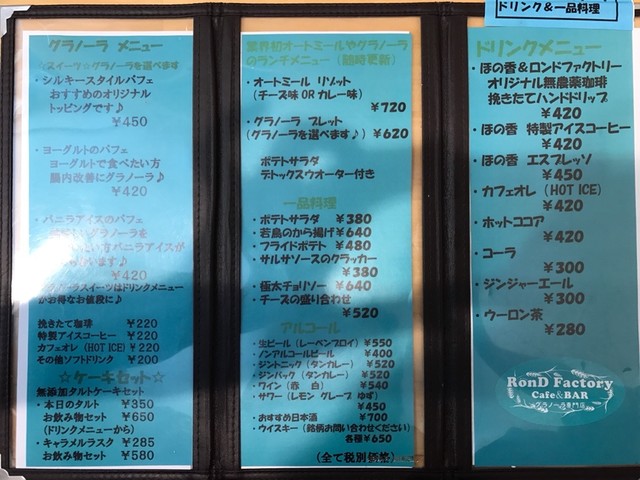 ドリンク&一品料理
グラノーラ メニュー
スイーツ☆グラノーラを選べます
・シルキースタイルパフェ
おすすめのオリジナル
トッピングです♪
¥450
・ヨーグルトのパフェ
ヨーグルトで食べたい方
腸内改善にグラノーラ♪
¥420
・バニラアイスのパフェ
グラノーラを
たい方バニラアイスが
います♪
¥420
グラノーラスイーツはドリンクメニュー
がお得なお値段に♪
挽きたて珈琲 ¥220
特製アイスコーヒー ¥220
カフェオレ(HOT ICE) ¥220
その他ソフトドリンク ¥200
☆ケーキセット☆
無添加タルトケーキセット
・本日のタルト ¥350
お飲み物セット ¥650
(ドリンクメニューから)
・キャラメルラスク ¥285
お飲み物セット ¥580
業界初オートミールやグラノーラ
のランチメニュー(随時更新)
・オートミール リゾット
(チーズ味 OR カレー味)
¥720
・グラノーラ プレット
(グラノーラを選べます♪) ¥620
ポテトサラダ
デトックスウオーター付き
一品料理
・ポテトサラダ ¥380
・若鳥のから揚げ ¥640
・フライドポテト ¥480
・サルサソースのクラッカー
¥380
・極太チョリソー ¥640
・チーズの盛り合わせ
¥520
アルコール
・生ビール(レーベンブロイ) ¥550
・ノンアルコールビール ¥400
・ジントニック(タンカレー) ¥520
・ジンバック(タンカレー) ¥520
・ワイン(赤 白) ¥540
・サワー(レモン グレープ ゆず)
¥450
・おすすめ日本酒 ¥700
・ウイスキー(銘柄お問い合わせください)
各種¥650
(全て税別価格)
ドリンクメニュー
・ほの香&ロンドファクトリー
オリジナル無農薬珈琲
挽きたてハンドドリップ
¥420
・ほの香 特製アイスコーヒー
¥420
・ほの香 エスプレッソ
¥450
・カフェオレ(HOT ICE)
¥420
・ホットココア
¥420
・コーラ
¥300
・ジンジャーエール
¥300
・ウーロン茶
¥280
RonD Factory
Cafe&BAR
グラノーラ専門店